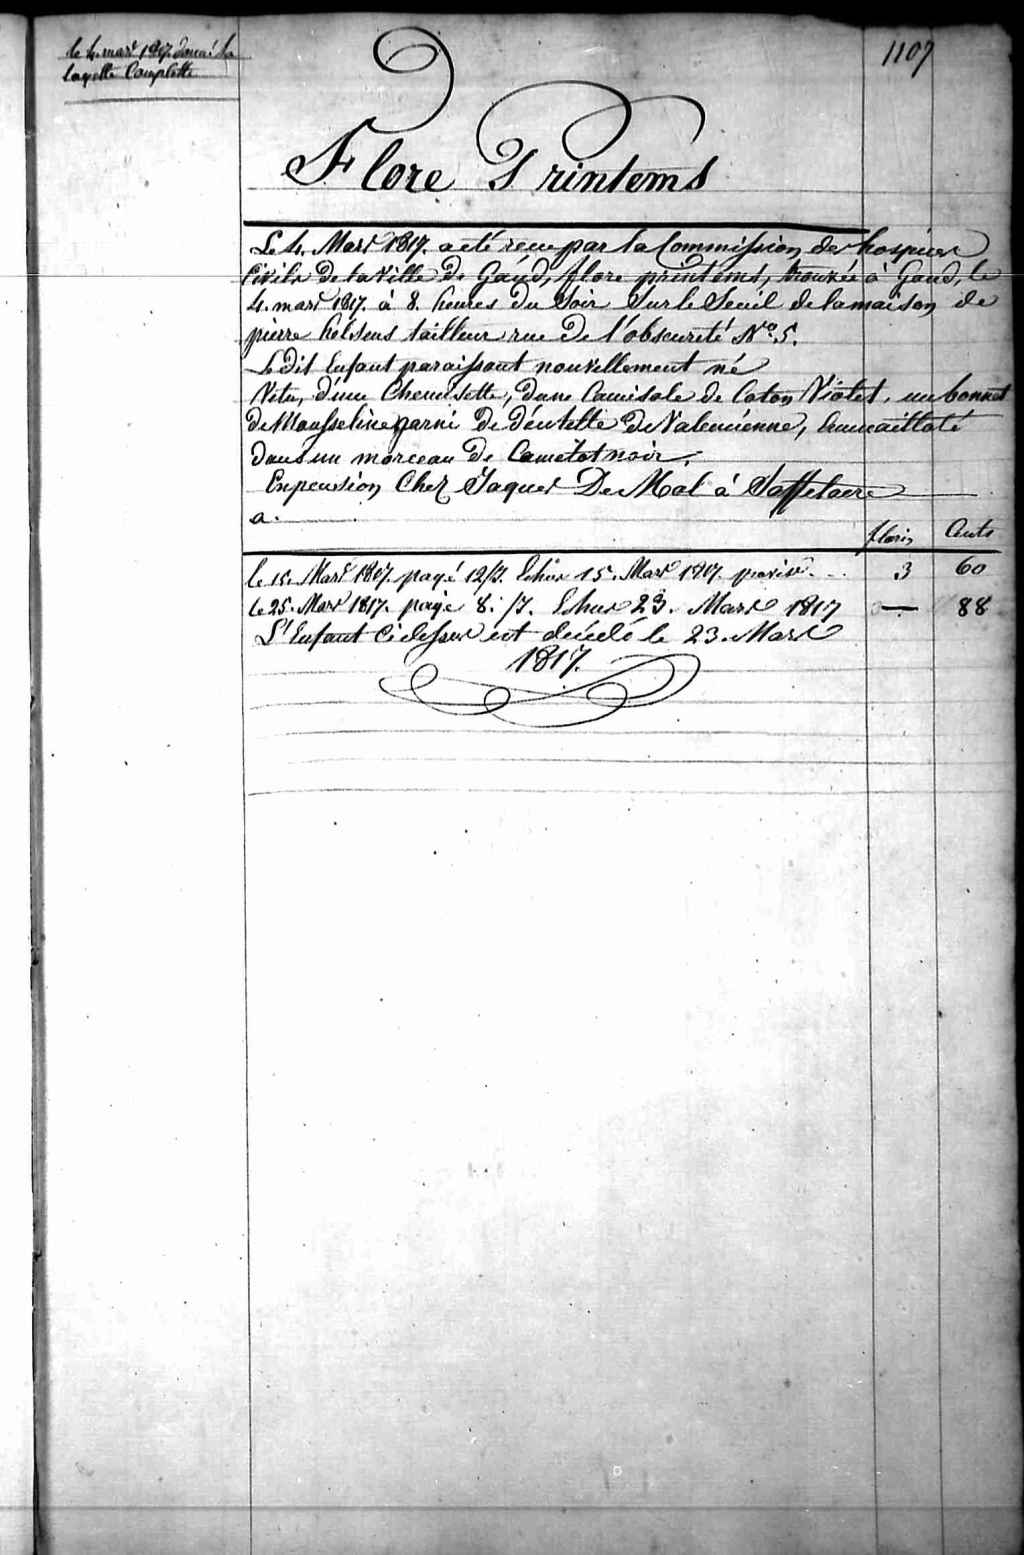 le 4. mars 1817. donné la
layette Complette
1107
Flore Printems
Le 4. Mars 1817. a eté recu par la Commission des hospices
Civils de la Ville de Gand, flore printems, trouvée à Gand, le
4. mars 1817. à 8. heures du Soir Sur le Seuil de la maison de
pierre helsens tailleur rue De l'obscurité N.º 5.
Le dit Enfant paraissant nouvellement né
Vetu, d'une Chemisette, d'une Camisole de Coton Violet, un bonnet
de Mousseline garni de dentelle de Valencienne, Emmailloté
dans un morceau de Camelot noir.
En pension Chez Jaques De Mol à Saffelaere
a.
florin Cents
le 15. Mars 1817. payé 12/J. Echus 15. Mars 1817. 3 60
Le 25. Mars 1817. payé 8. /J. Echus 23. Mars 1817 — 88
L'Enfant Cidessus est décédé le 23. Mars
1817.